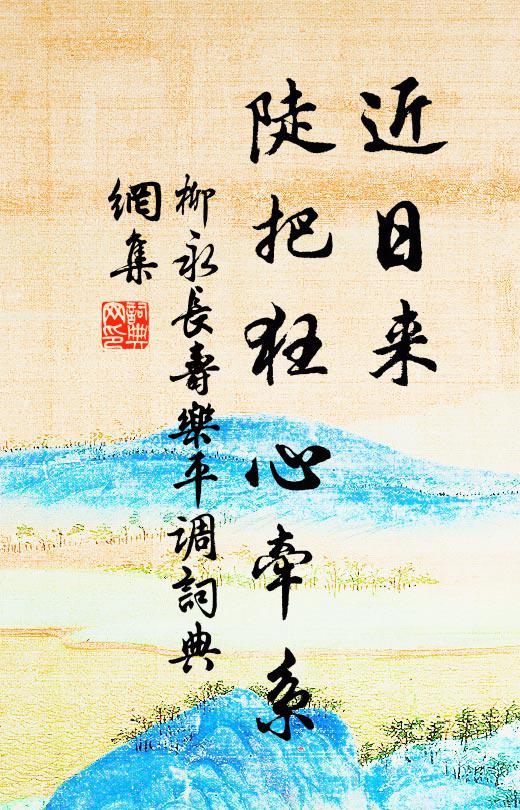 近日来
陡把狂心牵系
柳永長壽樂平调詞典
網集
詞典
网印